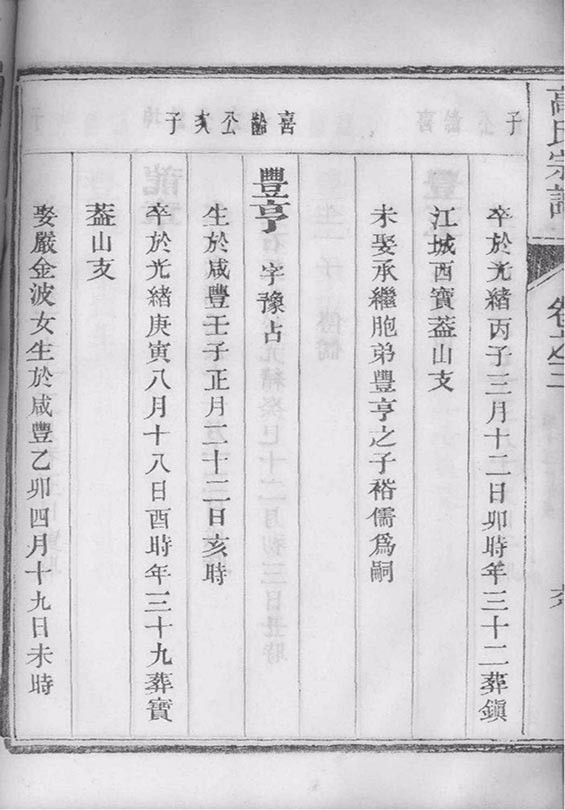 高氏宗譜
卷之三
子
卒於光緒丙子三月十二日卯時年三十二葬鎮
江城西寶葢山支
未娶承繼胞弟豐亨之子裕儒爲嗣
喜齡公次子
豐亨 字豫占
生於咸豐壬子正月二十二日亥時
卒於光緒庚寅八月十八日酉時年三十九葬寶
葢山支
娶嚴金波女生於咸豐乙卯四月十九日未時